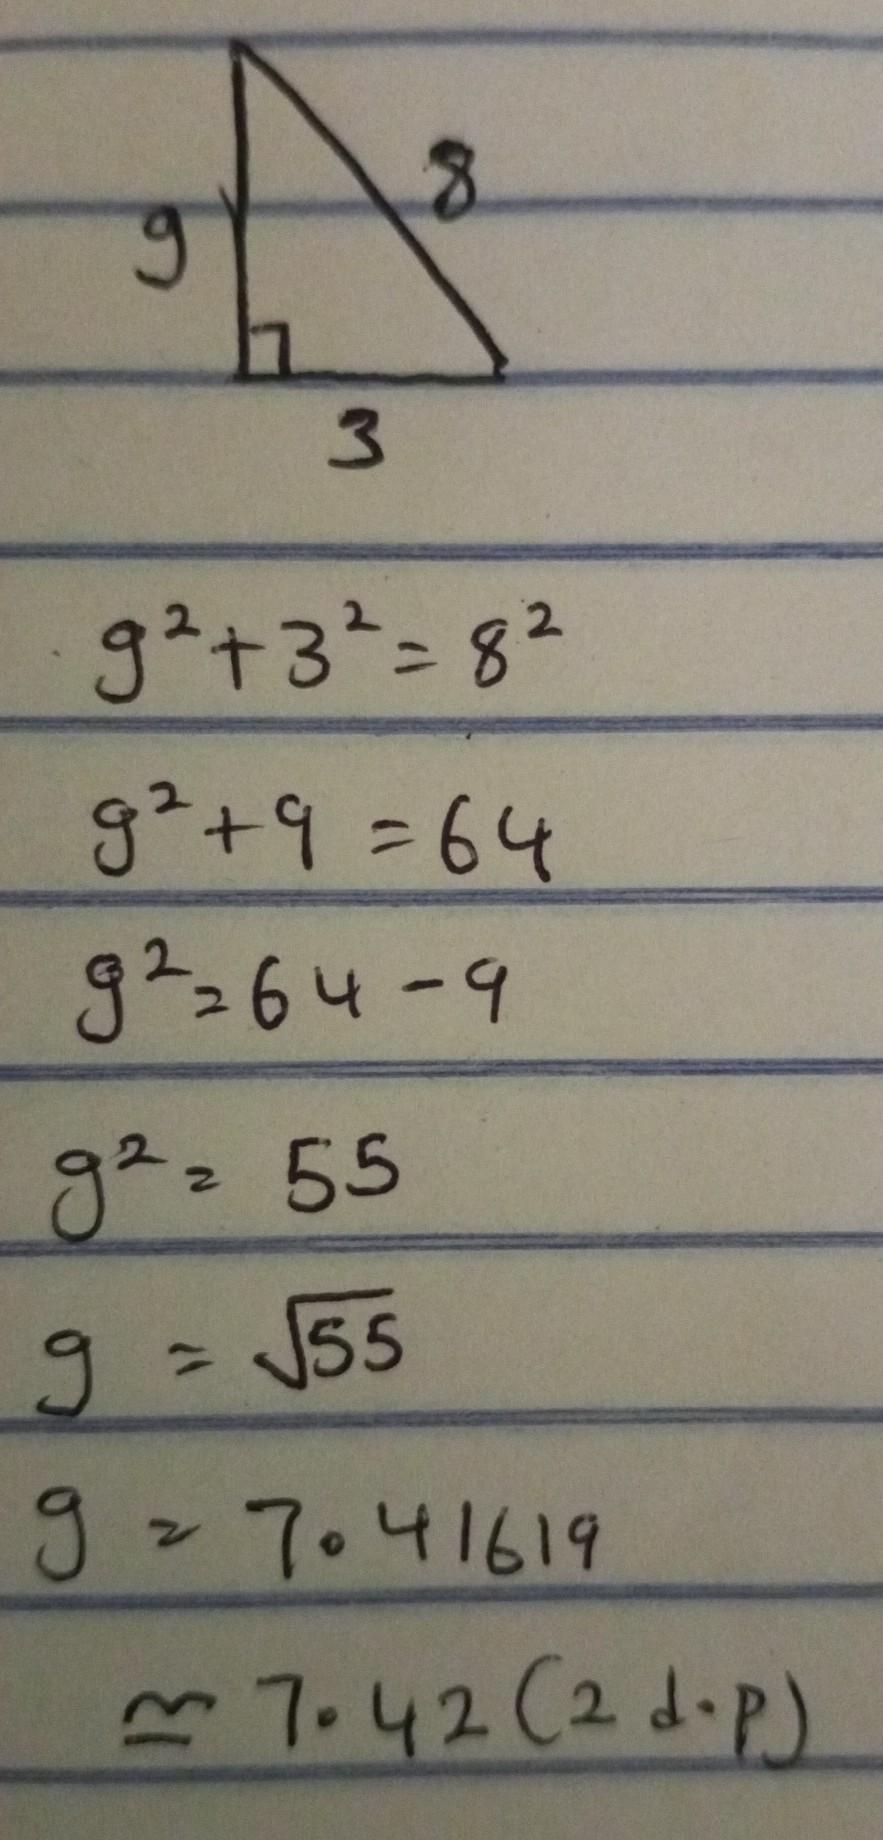 g
8
3
g² + 3² = 8²
g² + 9 = 64
g² = 64 - 9
g² = 55
g = √55
g = 7.41619
≃ 7.42 (2 d.p)